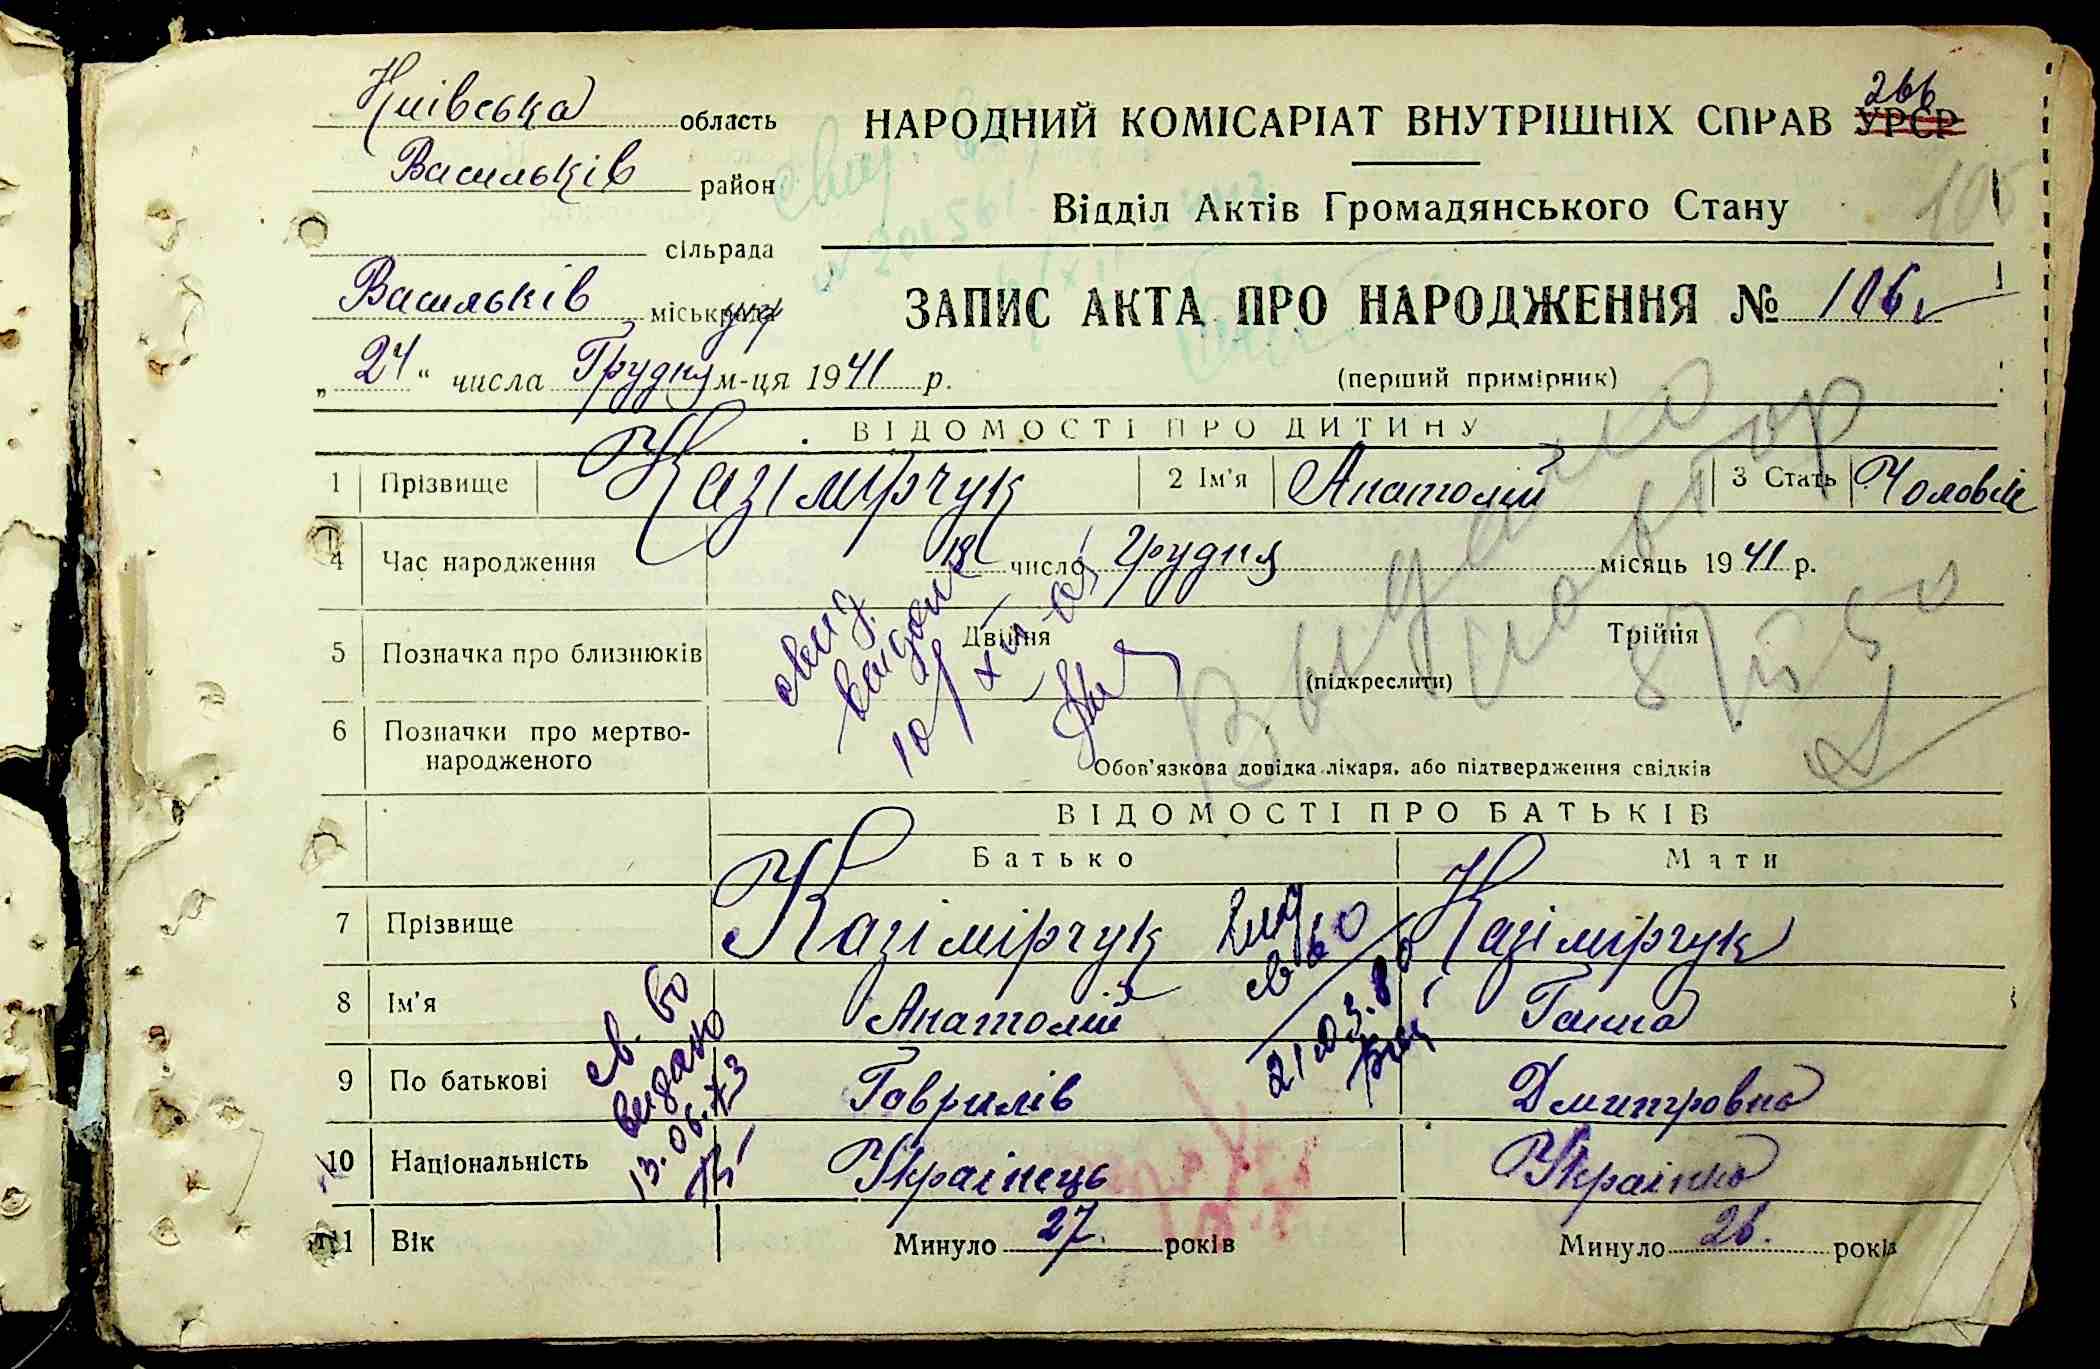 Київська область
НАРОДНИЙ КОМІСАРІАТ ВНУТРІШНІХ СПРАВ УРСР
266
Васильків район
106
Відділ Актів Громадянського Стану
сільрада
Васильків міськрада
ЗАПИС АКТА ПРО НАРОДЖЕННЯ № 106
„24“ числа Грудня м-ця 1941 р.
(перший примірник)
ВІДОМОСТІ ПРО ДИТИНУ
1 Прізвище Казімірчук 2 Ім'я Анатолій 3 Стать Чоловік
4 Час народження 18 число Грудня місяць 1941 р.
5 Позначка про близнюків Двійня Трійня
(підкреслити)
6 Позначки про мертво-
народженого
Обов'язкова довідка лікаря, або підтвердження свідків
свид.
выдано
Выдано
повтор
ВІДОМОСТІ ПРО БАТЬКІВ
Батько Мати
7 Прізвище Казімірчук Казімірчук
8 Ім'я Анатолій Ганна
9 По батькові Гаврилів Дмитровна
10 Національність Українець Українка
11 Вік Минуло 27. років Минуло 26. років
св-во
21.03.80
св. во
видано
13.06.73